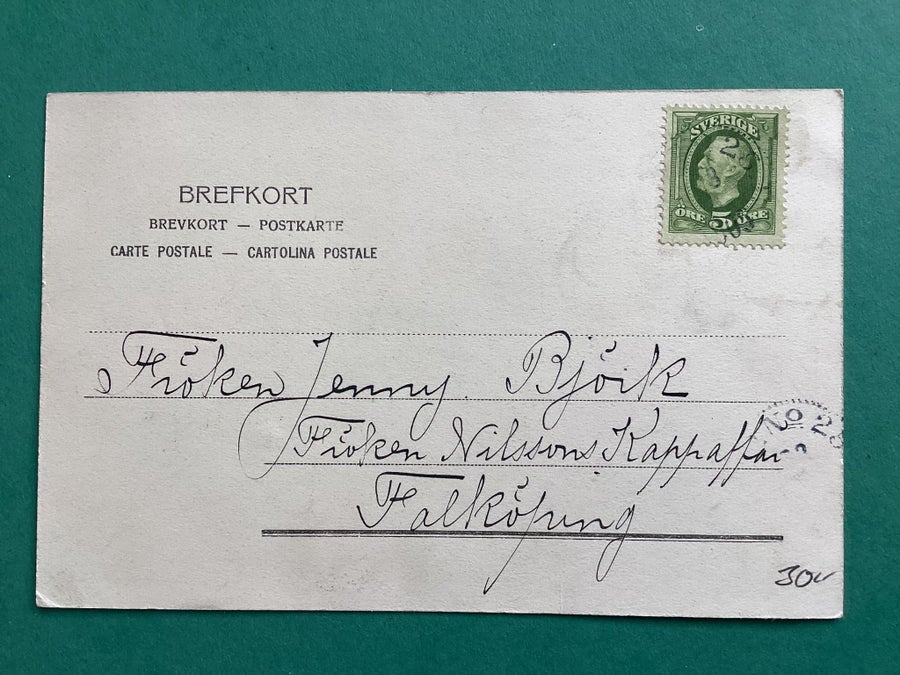 BREFKORT
BREVKORT — POSTKARTE
CARTE POSTALE — CARTOLINA POSTALE
SVERIGE
ÖRE 5 ÖRE
Fröken Jenny Björk
Fröken Nilssons Kappaffär
Falköping
No 28
30